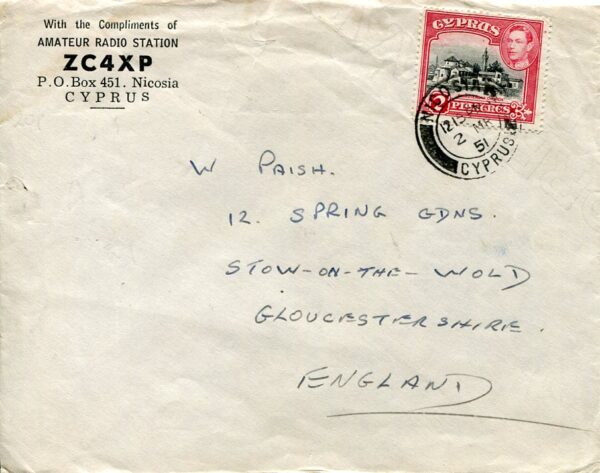 With the Compliments of
AMATEUR RADIO STATION
ZC4XP
P.O.Box 451. Nicosia
CYPRUS
CYPRUS
2 PIASTRES
NICOSIA
2 MR
51
CYPRUS
W PAISH.
12. SPRING GDNS.
STOW-ON-THE-WOLD
GLOUCESTERSHIRE.
ENGLAND